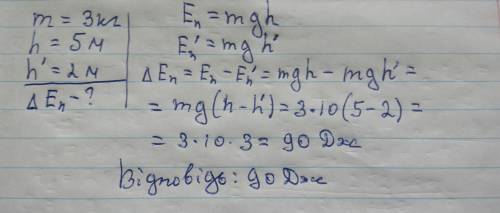 m = 3кг
h = 5м
h' = 2м
ΔEп - ?
Eп = mgh
Eп' = mgh'
ΔEп = Eп - Eп' = mgh - mgh' =
= mg(h - h') = 3·10(5-2) =
= 3·10·3 = 90 Дж
Відповідь: 90 Дж